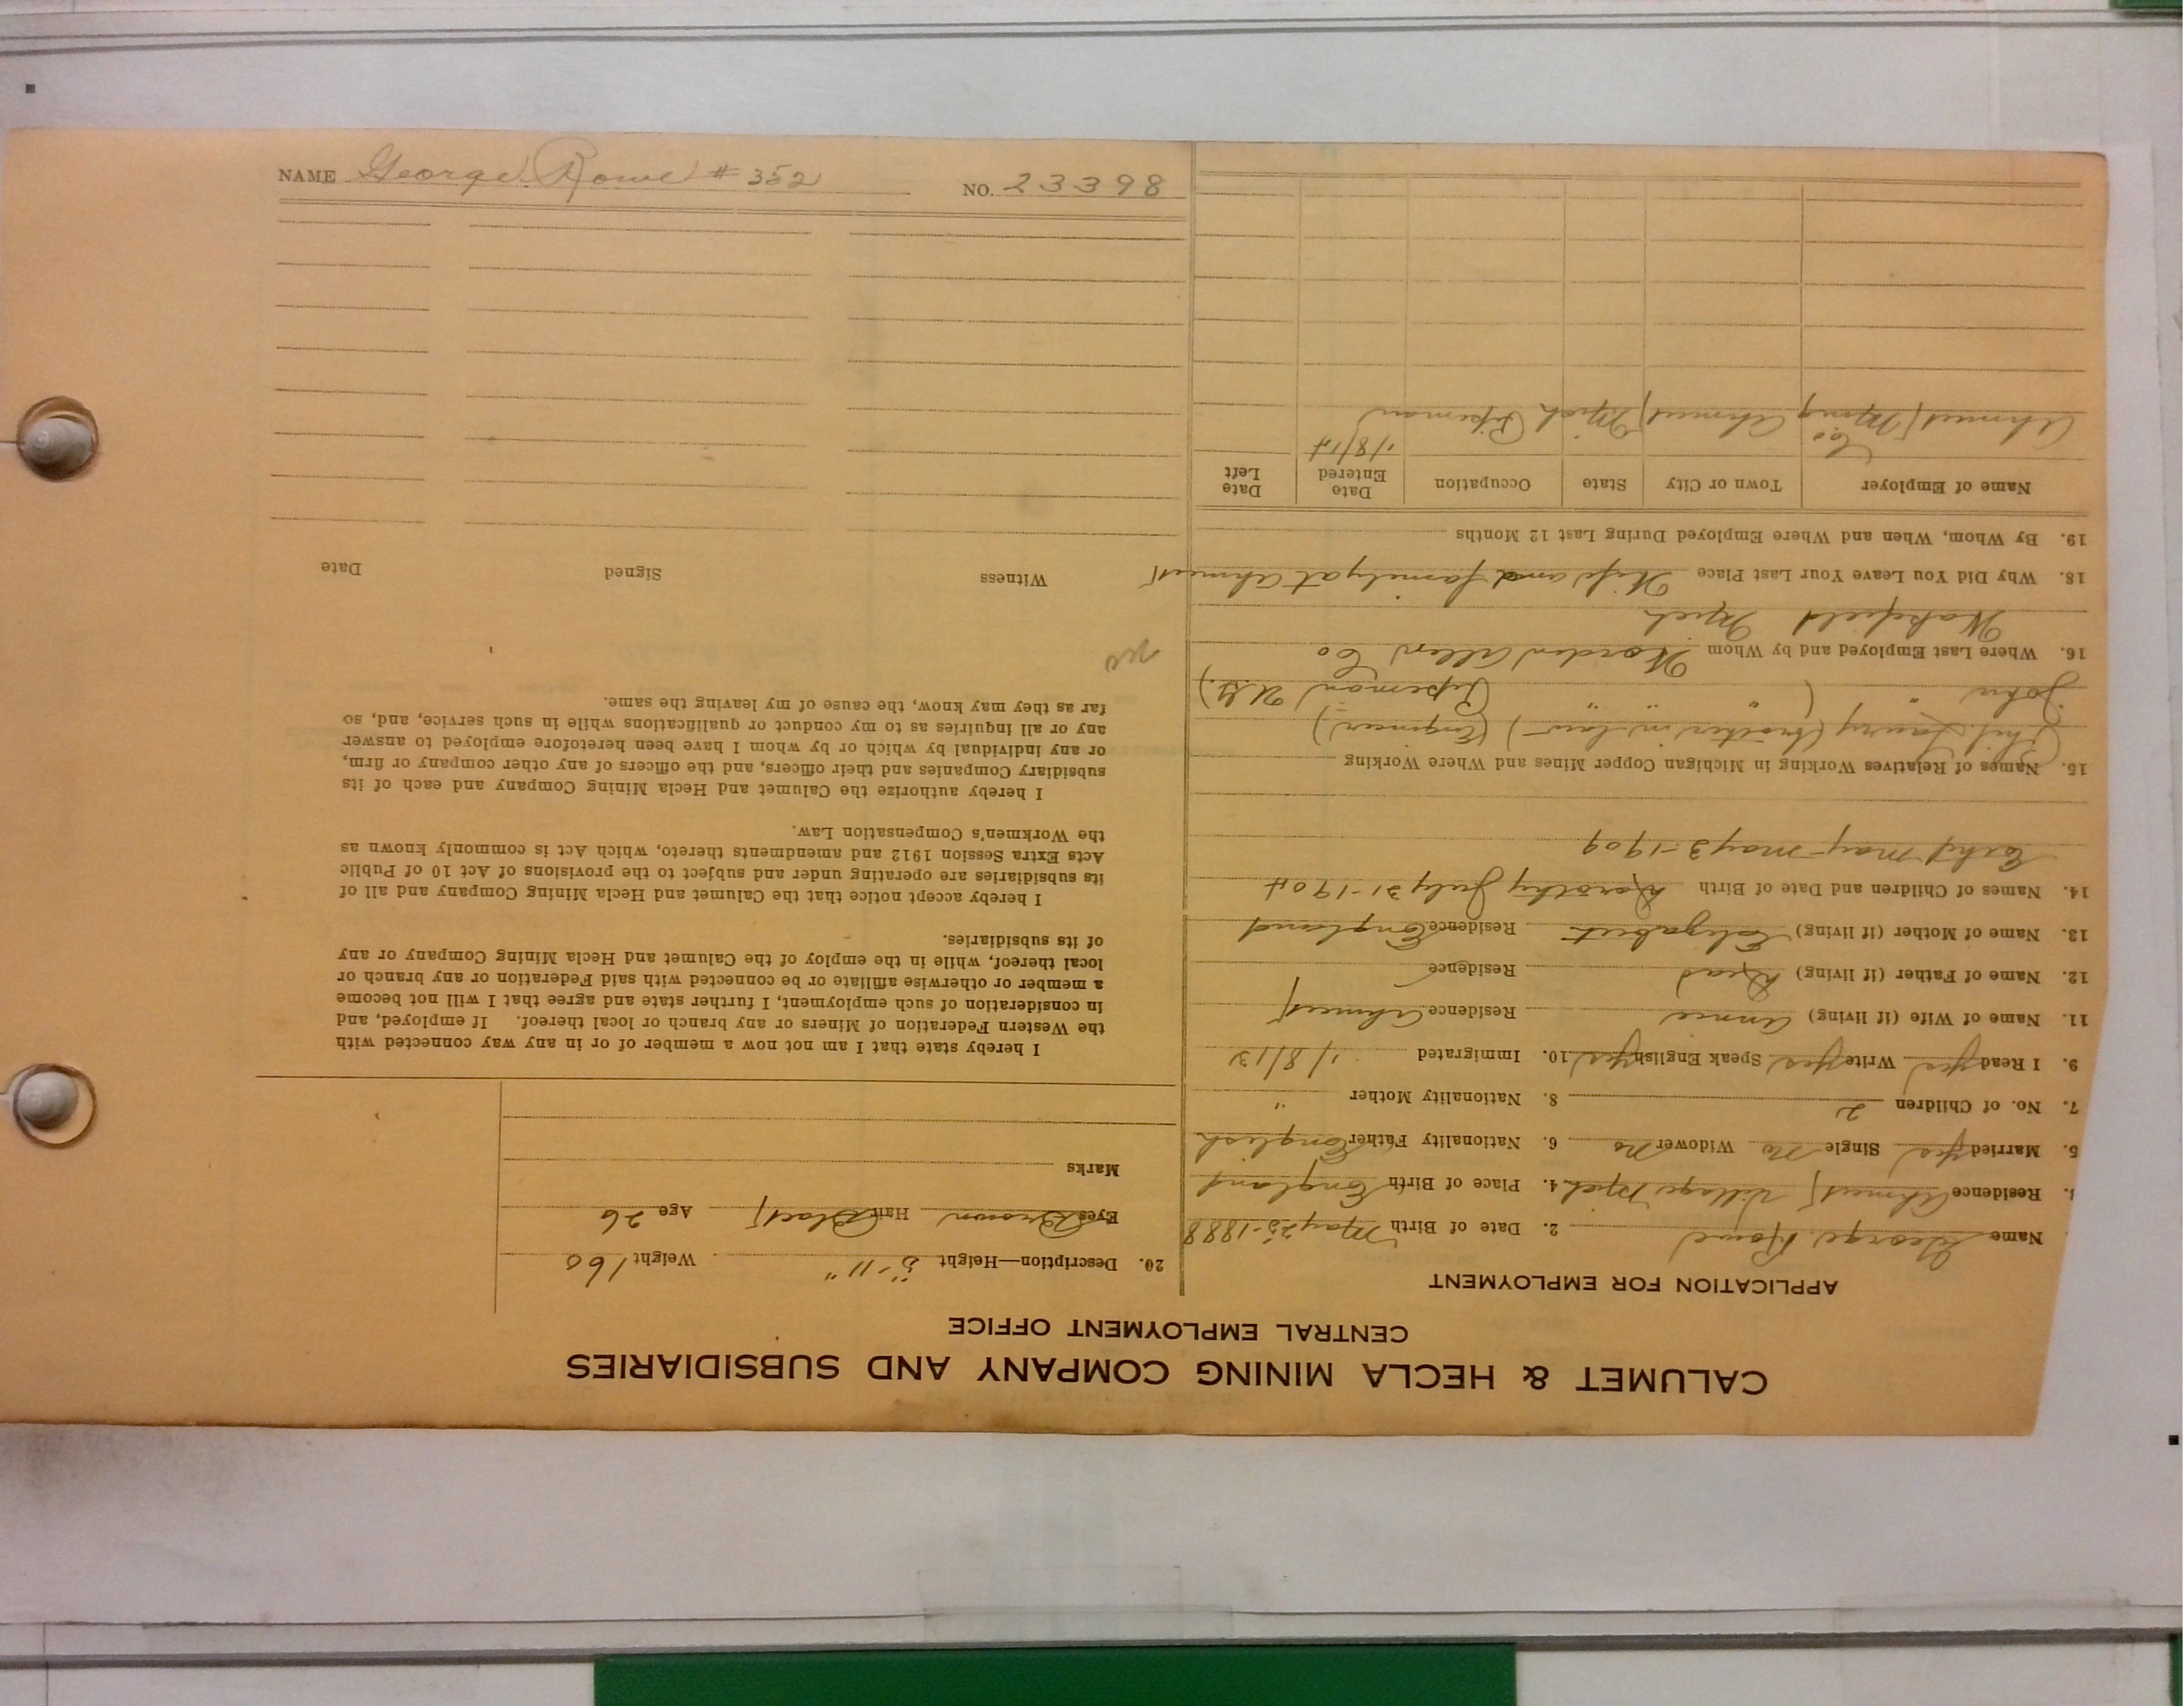 CALUMET & HECLA MINING COMPANY AND SUBSIDIARIES
CENTRAL EMPLOYMENT OFFICE
APPLICATION FOR EMPLOYMENT
Name George Rowe 2. Date of Birth May 25-1888
Residence Ahmeek Village Mich 4. Place of Birth England
5. Married Yes Single No Widower No 6. Nationality Father English
7. No. of Children 2 8. Nationality Mother "
9. I Read Yes Write Yes Speak English Yes 10. Immigrated 1/8/13
11. Name of Wife (if living) Annie Residence Ahmeek
12. Name of Father (if living) Dead Residence
13. Name of Mother (if living) Elizabeth Residence England
14. Names of Children and Date of Birth Dorothy July 31-1904
May-May 3-1909
15. Names of Relatives Working in Michigan Copper Mines and Where Working
Phil. Laury (brother in law) (Engineer)
John " ( " " " Pipeman
16. Where Last Employed and by Whom Worden Allen Co
Wakefield Mich
18. Why Did You Leave Your Last Place Wife and family at Ahmeek
19. By Whom, When and Where Employed During Last 12 Months
Name of Employer Town or City State Occupation Date Entered Date Left
Ahmeek Mining Co. Ahmeek Mich Pipeman 1/8/14
20. Description—Height 5-11" Weight 160
Eyes Brown Hair Black Age 26
Marks
I hereby state that I am not now a member of or in any way connected with
the Western Federation of Miners or any branch or local thereof. If employed, and
in consideration of such employment, I further state and agree that I will not become
a member or otherwise affiliate or be connected with said Federation or any branch or
local thereof, while in the employ of the Calumet and Hecla Mining Company or any
of its subsidiaries.
I hereby accept notice that the Calumet and Hecla Mining Company and all of
its subsidiaries are operating under and subject to the provisions of Act 10 of Public
Acts Extra Session 1912 and amendments thereto, which Act is commonly known as
the Workmen's Compensation Law.
I hereby authorize the Calumet and Hecla Mining Company and each of its
subsidiary Companies and their officers, and the officers of any other company or firm,
or any individual by which or by whom I have been heretofore employed to answer
any or all inquiries as to my conduct or qualifications while in such service, and, so
far as they may know, the cause of my leaving the same.
Witness Signed Date
NAME George Rowe #352 NO. 23398